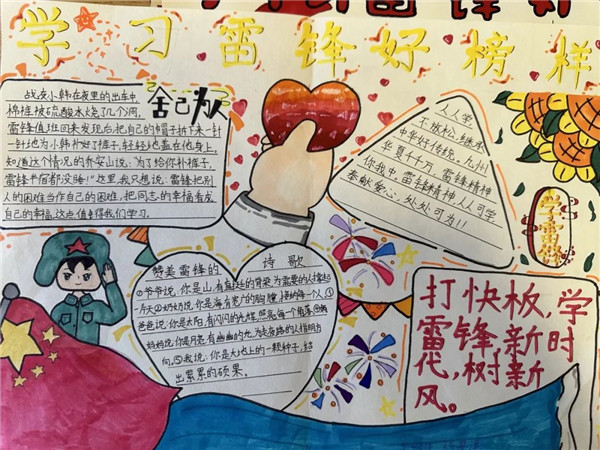 学习雷锋好榜样
舍己为人
战友小韩在夜里的出车中
棉裤被硫酸水烧了几个洞,
雷锋值班回来发现后把自己的帽子拆下来一针
一针地为小韩补好了裤子,轻轻地盖在他身上
知道这个情况的乔安山说:为了给你补裤子,
雷锋半宿都没睡!"这里,我只想说:雷锋把别
人的困难当作自己的困难,把同志的幸福看成
自己的幸福,这点值得我们学习。
人人学,
不放松,继承
中华好传统。九州
华夏千万,雷锋精神
你我中。雷锋精神人人可学
奉献爱心,处处可为!!
学雷锋
赞美雷锋的诗歌
①爷爷说,你是山,有
一方天②奶奶说,你是海,有宽广的胸膛,接纳每一个人③
爸爸说,你是太阳,有闪闪的光辉,照亮每个角落④
妈妈说,你是月亮,有幽幽的光,为
向。⑤我说:你是大地上的一颗种子,结
出累累的硕果。
打快板,学
雷锋,新时
代,树新
风。